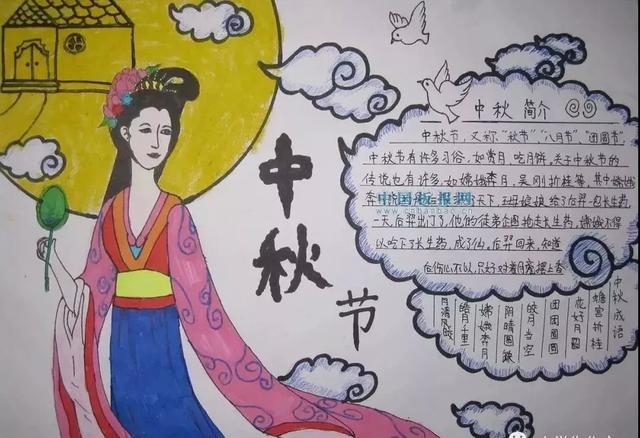 中秋节
中秋简介
中秋节,又称"秋节""八月节","团圆节",
中秋节有许多习俗,如赏月,吃月饼,关于中秋节的
传说也有许多,如嫦娥奔月,吴刚折桂等,其中嫦娥
天下,王母娘娘给了后羿一包长生药,
一天,后羿出门了,他的徒弟企图抢走长生药,嫦娥不得
以吃下了长生药,成了仙,后羿回来,知道
后伤心不以,只好对着月亮摆上香
中国板报网
中秋成语
蟾宫折桂
花好月圆
团团圆圆
皓月当空
阴晴圆缺
嫦娥奔月
皓月千里
月清风